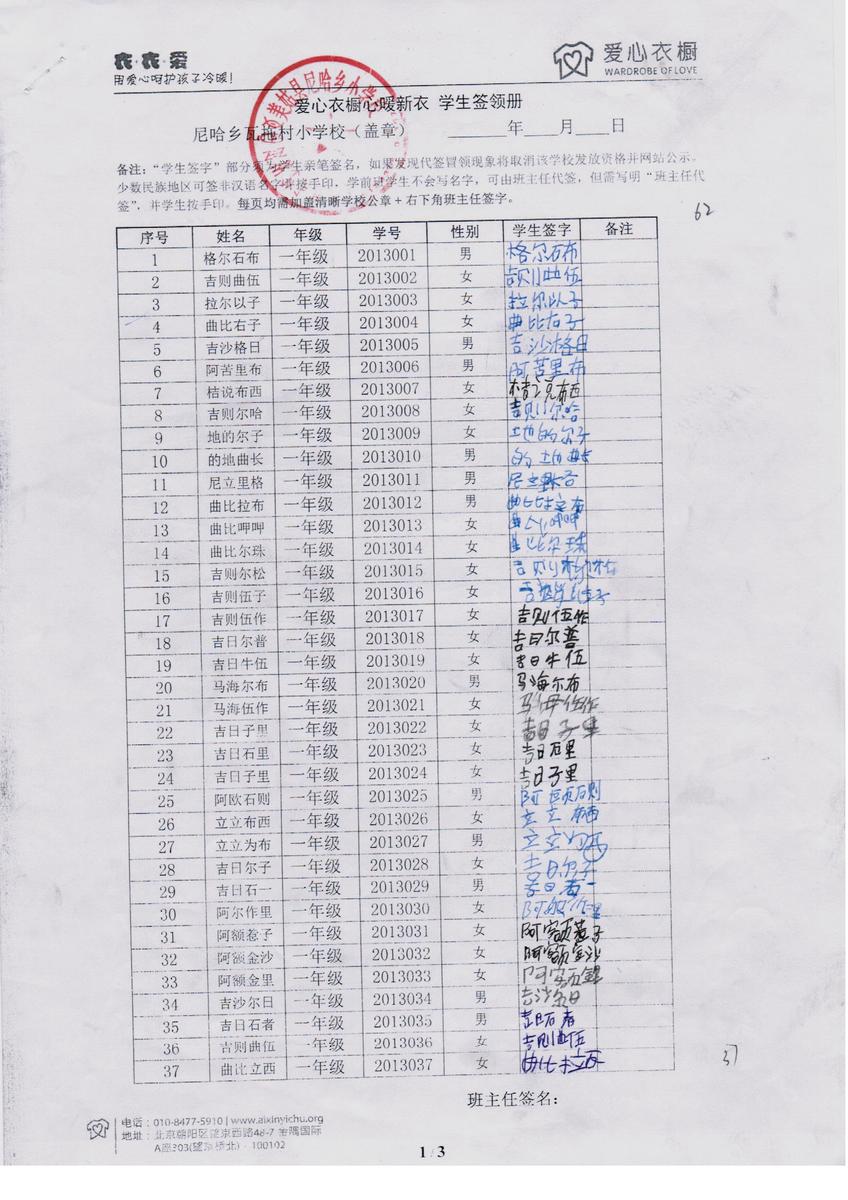 衣·衣·爱
用爱心呵护孩子冷暖!
爱心衣橱
WARDROBE OF LOVE
爱心衣橱心暖新衣 学生签领册
尼哈乡瓦拖村小学校（盖章） ______年____月____日
备注：“学生签字”部分须为学生亲笔签名，如果发现代签冒领现象将取消该学校发放资格并网站公示。
少数民族地区可签非汉语名字并按手印，学前班学生不会写名字，可由班主任代签，但需写明“班主任代
签”，并学生按手印。每页均需加盖清晰学校公章+右下角班主任签字。
62
序号 姓名 年级 学号 性别 学生签字 备注
1 格尔石布 一年级 2013001 男 格尔石布
2 吉则曲伍 一年级 2013002 女 吉则曲伍
3 拉尔以子 一年级 2013003 女 拉尔以子
4 曲比右子 一年级 2013004 女 曲比右子
5 吉沙格日 一年级 2013005 男 吉沙格日
6 阿苦里布 一年级 2013006 男 阿苦里布
7 桔说布西 一年级 2013007 女 桔说布西
8 吉则尔哈 一年级 2013008 女 吉则尔哈
9 地的尔子 一年级 2013009 女 地的尔子
10 的地曲长 一年级 2013010 男 的地曲
11 尼立里格 一年级 2013011 男 尼立
12 曲比拉布 一年级 2013012 男 曲比拉布
13 曲比呷呷 一年级 2013013 女 曲比呷呷
14 曲比尔珠 一年级 2013014 女 曲比尔珠
15 吉则尔松 一年级 2013015 女 吉则
16 吉则伍子 一年级 2013016 女 吉
17 吉则伍作 一年级 2013017 女 吉则伍作
18 吉日尔普 一年级 2013018 女 吉日尔普
19 吉日牛伍 一年级 2013019 女 吉日牛伍
20 马海尔布 一年级 2013020 男 马海尔布
21 马海伍作 一年级 2013021 女 马海伍作
22 吉日子里 一年级 2013022 女 吉日子里
23 吉日石里 一年级 2013023 女 吉日石里
24 吉日子里 一年级 2013024 女 吉日子里
25 阿欧石则 一年级 2013025 男 阿 石则
26 立立布西 一年级 2013026 女 立立布西
27 立立为布 一年级 2013027 男 立立为
28 吉日尔子 一年级 2013028 女 吉日尔子
29 吉日石一 一年级 2013029 男 吉日石一
30 阿尔作里 一年级 2013030 女 阿 作里
31 阿额惹子 一年级 2013031 女 阿额惹子
32 阿额金沙 一年级 2013032 女 阿额金沙
33 阿额金里 一年级 2013033 女 阿额金里
34 吉沙尔日 一年级 2013034 男 吉沙尔日
35 吉日石者 一年级 2013035 男 吉日石者
36 吉则曲伍 一年级 2013036 女 吉则曲伍
37 曲比立西 一年级 2013037 女 曲比立西
37
班主任签名：
电话：010-8477-5910 | www.aixinyichu.org
地址：北京朝阳区望京西路48-7 金隅国际
A座303(望京桥北) · 100102
1 / 3